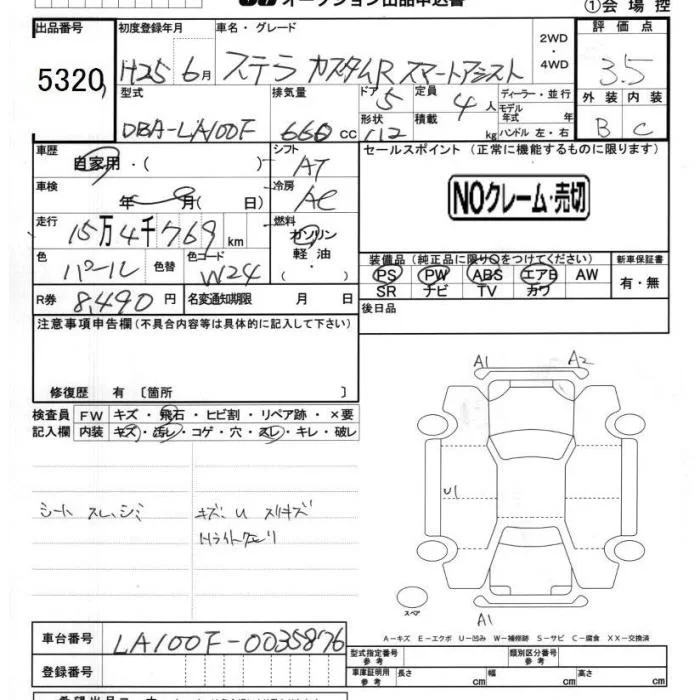 オークション出品申込書 ①会場控
出品番号 初度登録年月 車名・グレード 2WD・4WD 評価点
5320 H25 6月 ステラ カスタムR スマートアシスト 3.5
型式 排気量 ドア 5 定員 4人 ディーラー・並行 外装 内装
DBA-LA100F 660cc 形状 積載 kg モデル年式 年 ハンドル 左・右 B C
車歴 自家用・( ) シフト AT セールスポイント (正常に機能するものに限ります)
車検 年 月( 日) 冷房 AC NOクレーム・売切
走行 15万4千769km 燃料 ガソリン 軽油・( )
色 パール 色替 色コード W24
装備品(純正品に限り○をつけてください) 新車保証書
PS PW ABS エアB AW 有・無
SR ナビ TV カワ
R券 8,490円 名変通知期限 月 日 後日品
注意事項申告欄(不具合内容等は具体的に記入して下さい)
修復歴 有 〔箇所 〕
検査員記入欄 FW キズ・飛石・ヒビ割・リペア跡・×要
内装 キズ・汚レ・コゲ・穴・スレ・キレ・破レ
シート スレ、シミ キズ、U スリキズ
Hライト
A1 A2
U1
スペア A1
A-キズ E-エクボ U-凹み W-補修跡 S-サビ C-腐食 XX-交換済
車台番号 LA100F-0035876 型式指定番号 参考 類別区分番号 参考
登録番号 車庫証明用 参考 長さ cm 幅 cm 高さ cm
希望出品コーナー